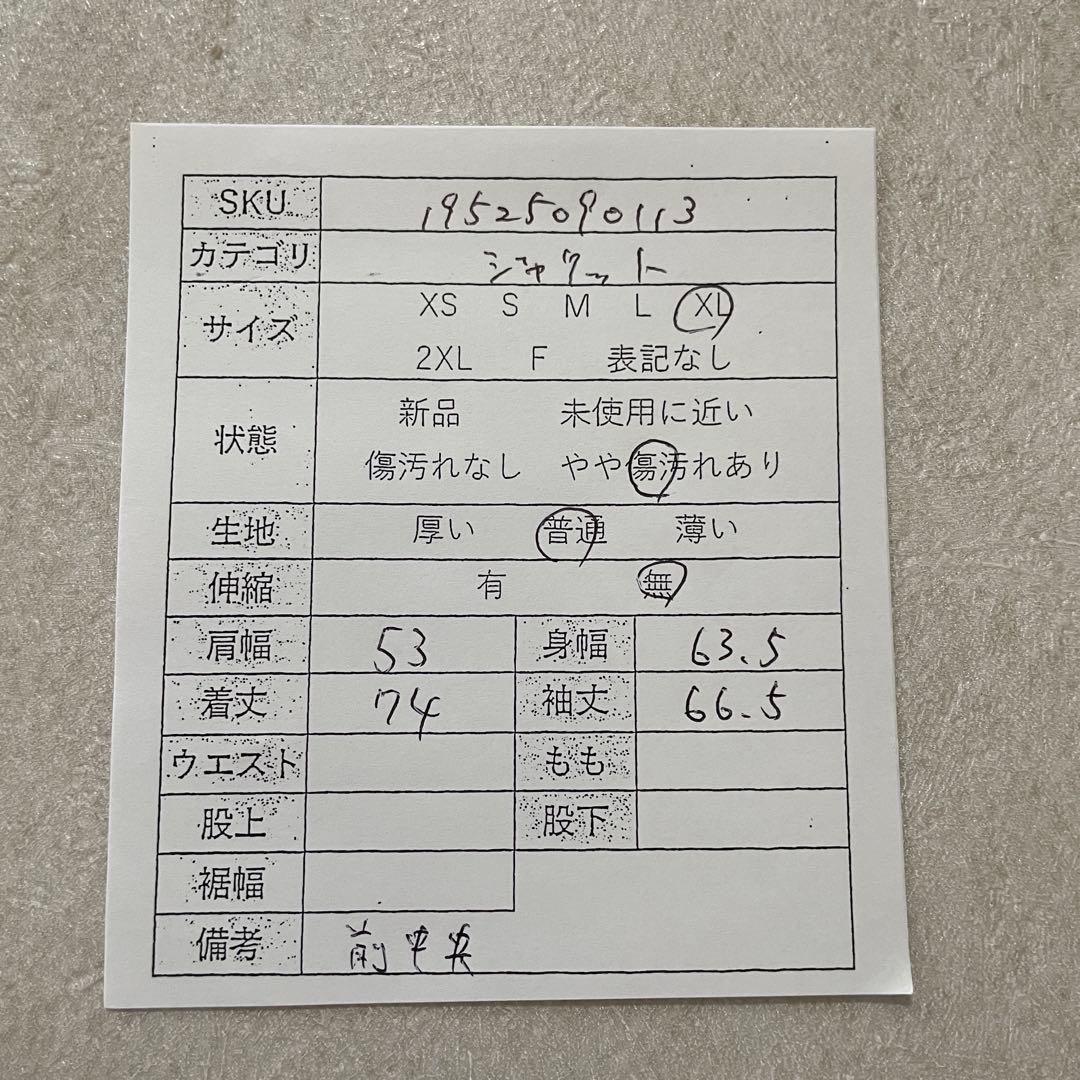 SKU 19525090113
カテゴリ ジャケット
サイズ XS S M L XL
2XL F 表記なし
状態 新品 未使用に近い
傷汚れなし やや傷汚れあり
生地 厚い 普通 薄い
伸縮 有 無
肩幅 53 身幅 63.5
着丈 74 袖丈 66.5
ウエスト もも
股上 股下
裾幅
備考 前中央